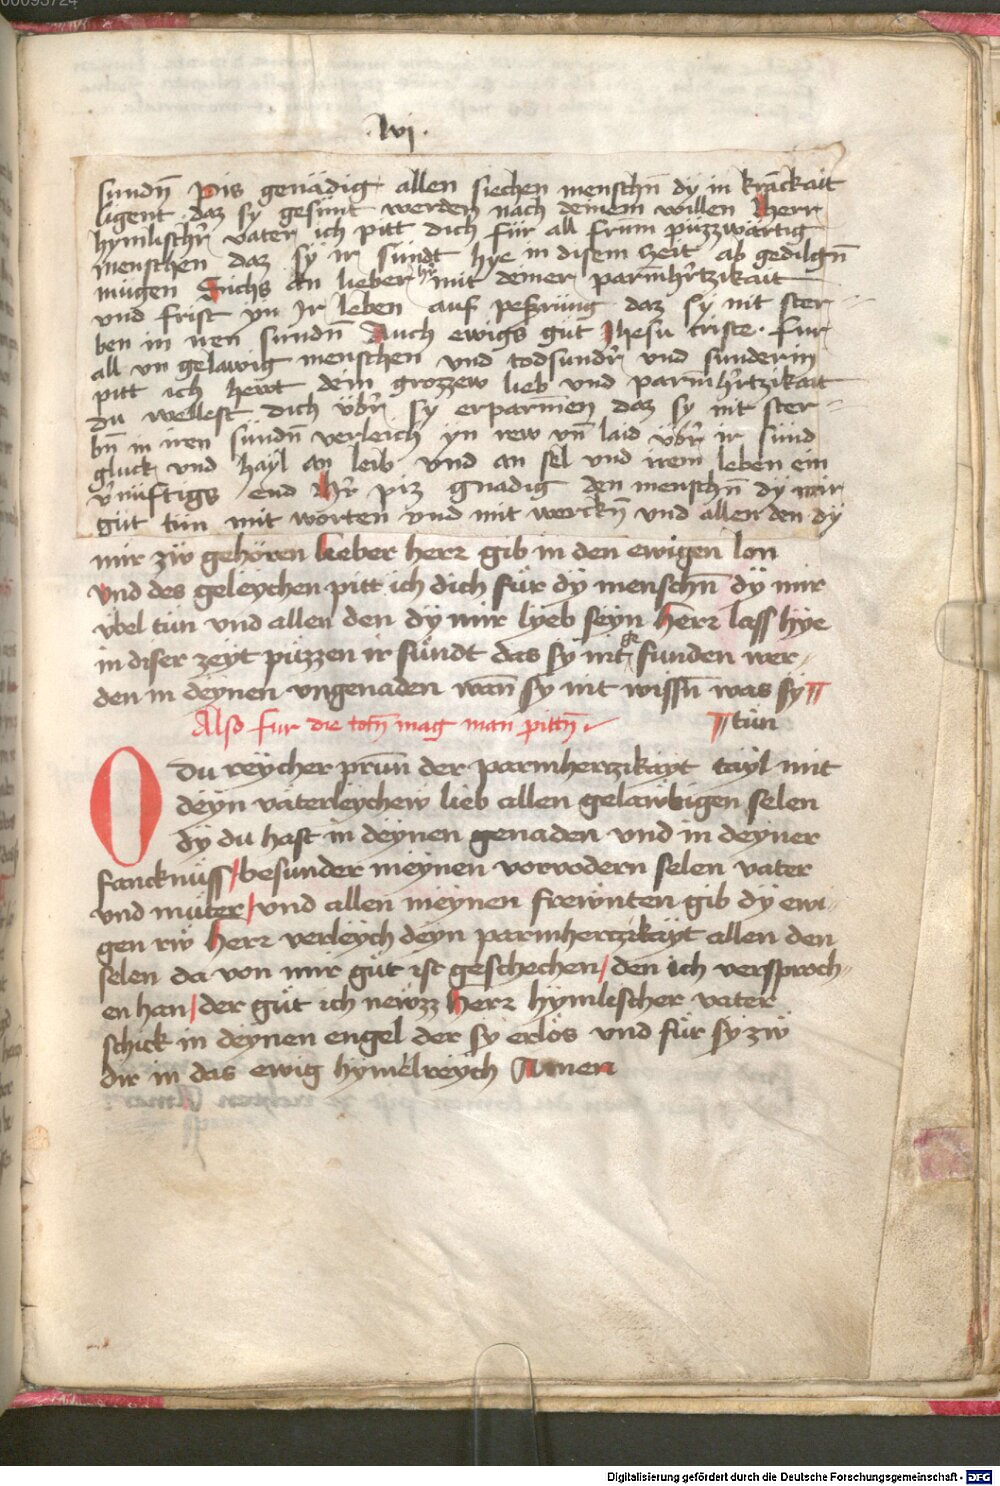 00095724
·lvj·
sundn̄ Pis genädig allen siechen menschn̄ dy in kranckait
ligent daz sy gesunt werden nach deinem willen Herr
hymlischr̄ vater ich pitt dich für all frum puzzwärtig
menschen daz sy ir sundt hye in disem zeit ab gedilgn̄
mügen Suchs an lieber hr̄ mit deiner parmh̄rtzikait
vnd frist yn Ir leben auf peßrung daz sy nit ster=
ben in iren sundn̄ Auch ewigs gut Jhesu criste · fur
all vn gelawig menschen vnd todsundr̄ vnd sunderin
pitt ich hewt dein grozzew lieb vnd parmh̄rtzikait
du wellest dich vbr̄ sy erparmen daz sy nit ster=
bn̄ in iren sundn̄ verleich yn rew vn̄ laid vbr̄ ir sünd
gluck vnd hayl an leib vnd an sel vnd irem leben ein
v̄nüftigs end Hr̄ piz gnadig den menschn̄ dy mir
gut tün mit worten vnd mit werckn̄ vnd allen den dy
mir zw gehören lieber herr gib in den ewigen lon
vnd des geleychen pitt ich dich für dÿ menschn̄ dÿ mir
vbel tün vnd allen den dÿ mir lyeb seyn herr lass hye
in diser zeyt püzzen ir sündt das sy nit funden wer/
den in deynen vngenaden wan̄ sy nit wissn̄ was sy
tün
Also fur die totn̄ mag man pittn̄
O du reycher prun̄ der parmhertzikayt tayl mit
deyn väterleychew lieb allen gelawbigen selen
dÿ du hast in deynen genaden vnd in deyner
fancknüss / besunder meynen vorvodern selen vater
vnd müter / vnd allen meynen frewnten gib dÿ ewi
gen rw herr verleych deyn parmhertzikäyt allen den
selen da von mir güt ist geschechen / den ich versproch=
en han / der güt ich newzz herr hymlischer vater
schick in deynen engel der sy erlös vnd für sy zw
dir in das ewig hymelreych Amen
Digitalisierung gefördert durch die Deutsche Forschungsgemeinschaft - DFG